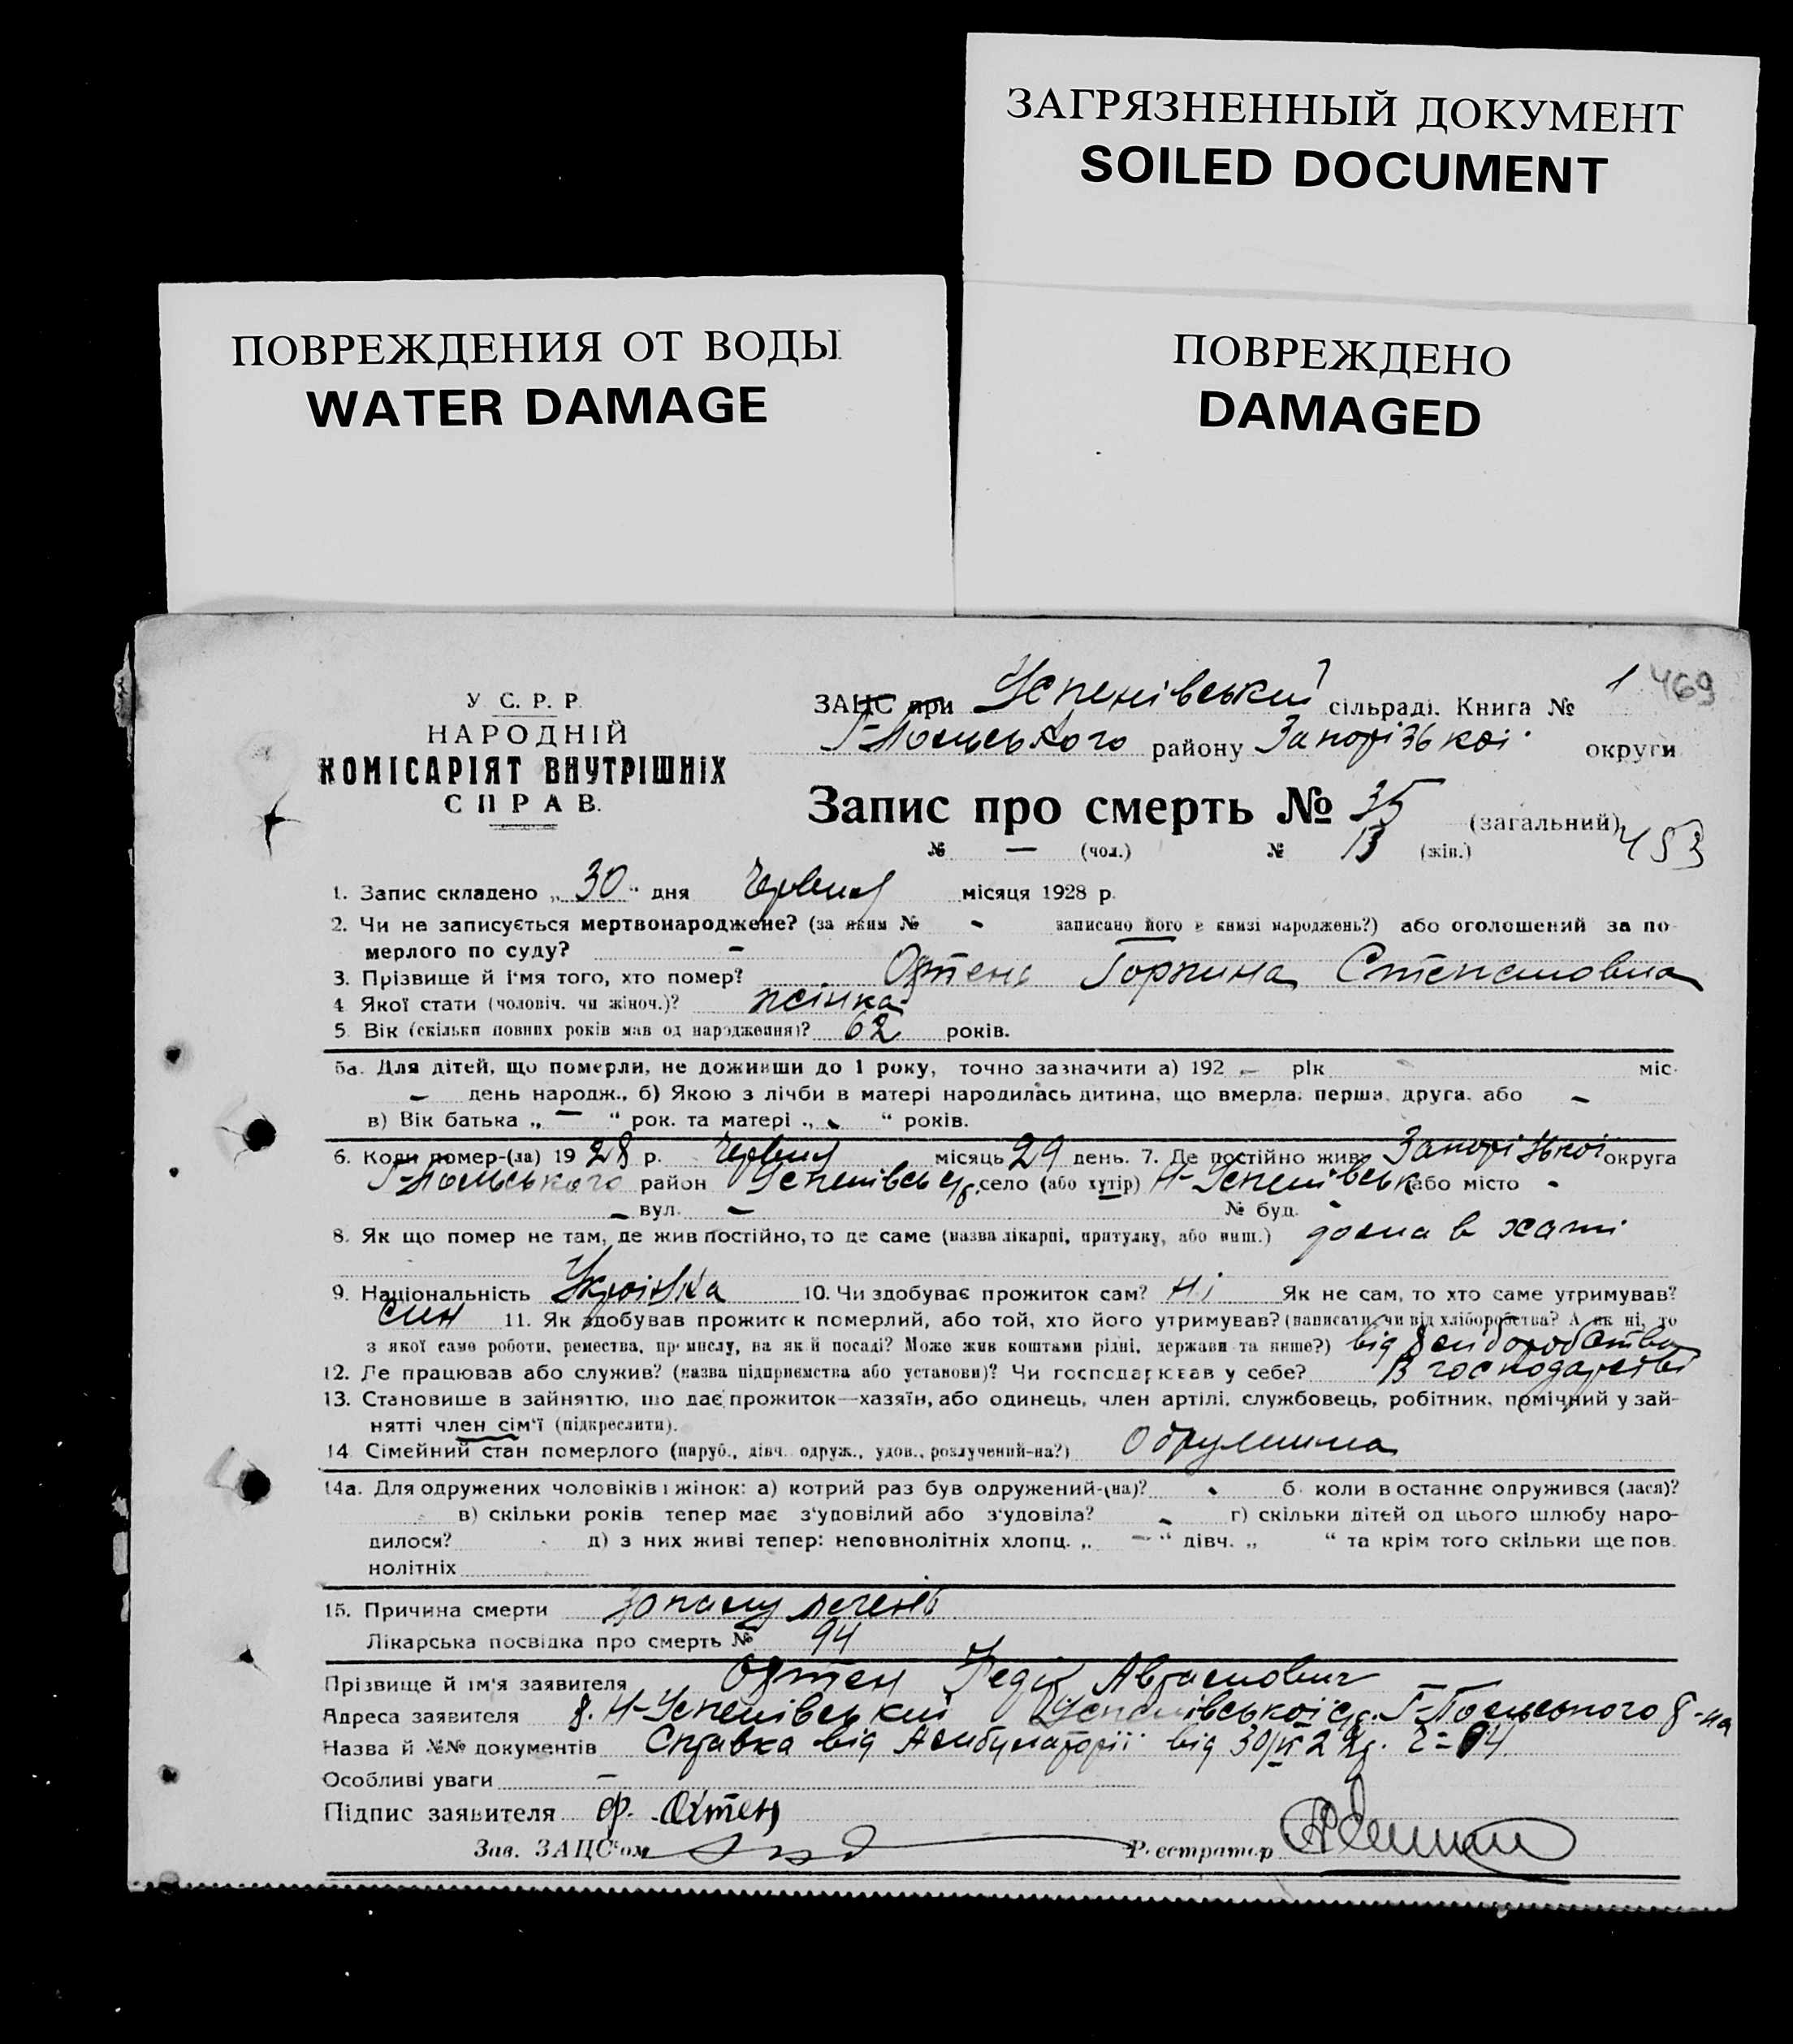 ЗАГРЯЗНЕННЫЙ ДОКУМЕНТ
SOILED DOCUMENT
ПОВРЕЖДЕНИЯ ОТ ВОДЫ
WATER DAMAGE
ПОВРЕЖДЕНО
DAMAGED
У С. Р. Р.
НАРОДНІЙ
КОМІСАРІЯТ ВНУТРІШНІХ
СПРАВ.
ЗАЦС при Успенівський сільраді. Книга № 1 469
району Запорізької округи
Запис про смерть № 35 (загальний) 453
№ — (чол.) № 13 (жін.)
1. Запис складено „ 30 “ дня Червня місяця 1928 р.
2. Чи не записується мертвонароджене? (за яким № - записано його в книзі народжень?) або оголошений за по-
мерлого по суду? -
3. Прізвище й ім'я того, хто помер? Горпина Степановна
4 Якої стати (чоловіч. чи жіноч.)? жінка
5. Вік (скільки повних років мав од народження)? 62 років.
5а. Для дітей, що померли, не доживши до 1 року, точно зазначити а) 192 - рік міс.
- день народж., б) Якою з лічби в матері народилась дитина, що вмерла: перша, друга, або -
в) Вік батька „ — “ рок. та матері „ - “ років.
6. Коли помер-(ла) 19 28 р. Червня місяць 29 день. 7. Де постійно жив? Запорізької округа
район село (або хутір) Н-Успенівськ або місто -
- вул. - № буд. -
8. Як що помер не там, де жив постійно, то де саме (назва лікарні, притулку, або инш.) дома в хаті
9. Національність Українка 10. Чи здобуває прожиток сам? Ні Як не сам, то хто саме утримував?
син 11. Як здобував прожиток померлий, або той, хто його утримував? (написати, чи від хліборобства? А як ні, то
з якої саме роботи, ремества, промислу, на якій посаді? Може жив коштами рідні, держави та инше?) від хліборобства
12. Де працював або служив? (назва підприємства або установи)? Чи господарював у себе? В господарстві
13. Становище в зайняттю, що дає прожиток—хазяїн, або одинець, член артілі, службовець, робітник, помічний у зай-
нятті член сім'ї (підкреслити).
14. Сімейний стан померлого (паруб., дівч. одруж., удов., розлучений-на?)
14а. Для одружених чоловіків і жінок: а) котрий раз був одружений-(на)? - б коли востаннє одружився (лася)?
в) скільки років тепер має з'удовілий або з'удовіла? - г) скільки дітей од цього шлюбу наро-
дилося? - д) з них живі тепер: неповнолітніх хлопц. „ — “ дівч. „ “ та крім того скільки ще пов.
нолітніх
15. Причина смерти печені
Лікарська посвідка про смерть № 94
Прізвище й ім'я заявителя
Адреса заявителя Н-Успенівський Успенівської с/р.
Назва й №№ документів Справка від Амбулаторії від 30/VI
Особливі уваги —
Підпис заявителя Ф.
Зав. ЗАЦС'ом Реєстратор